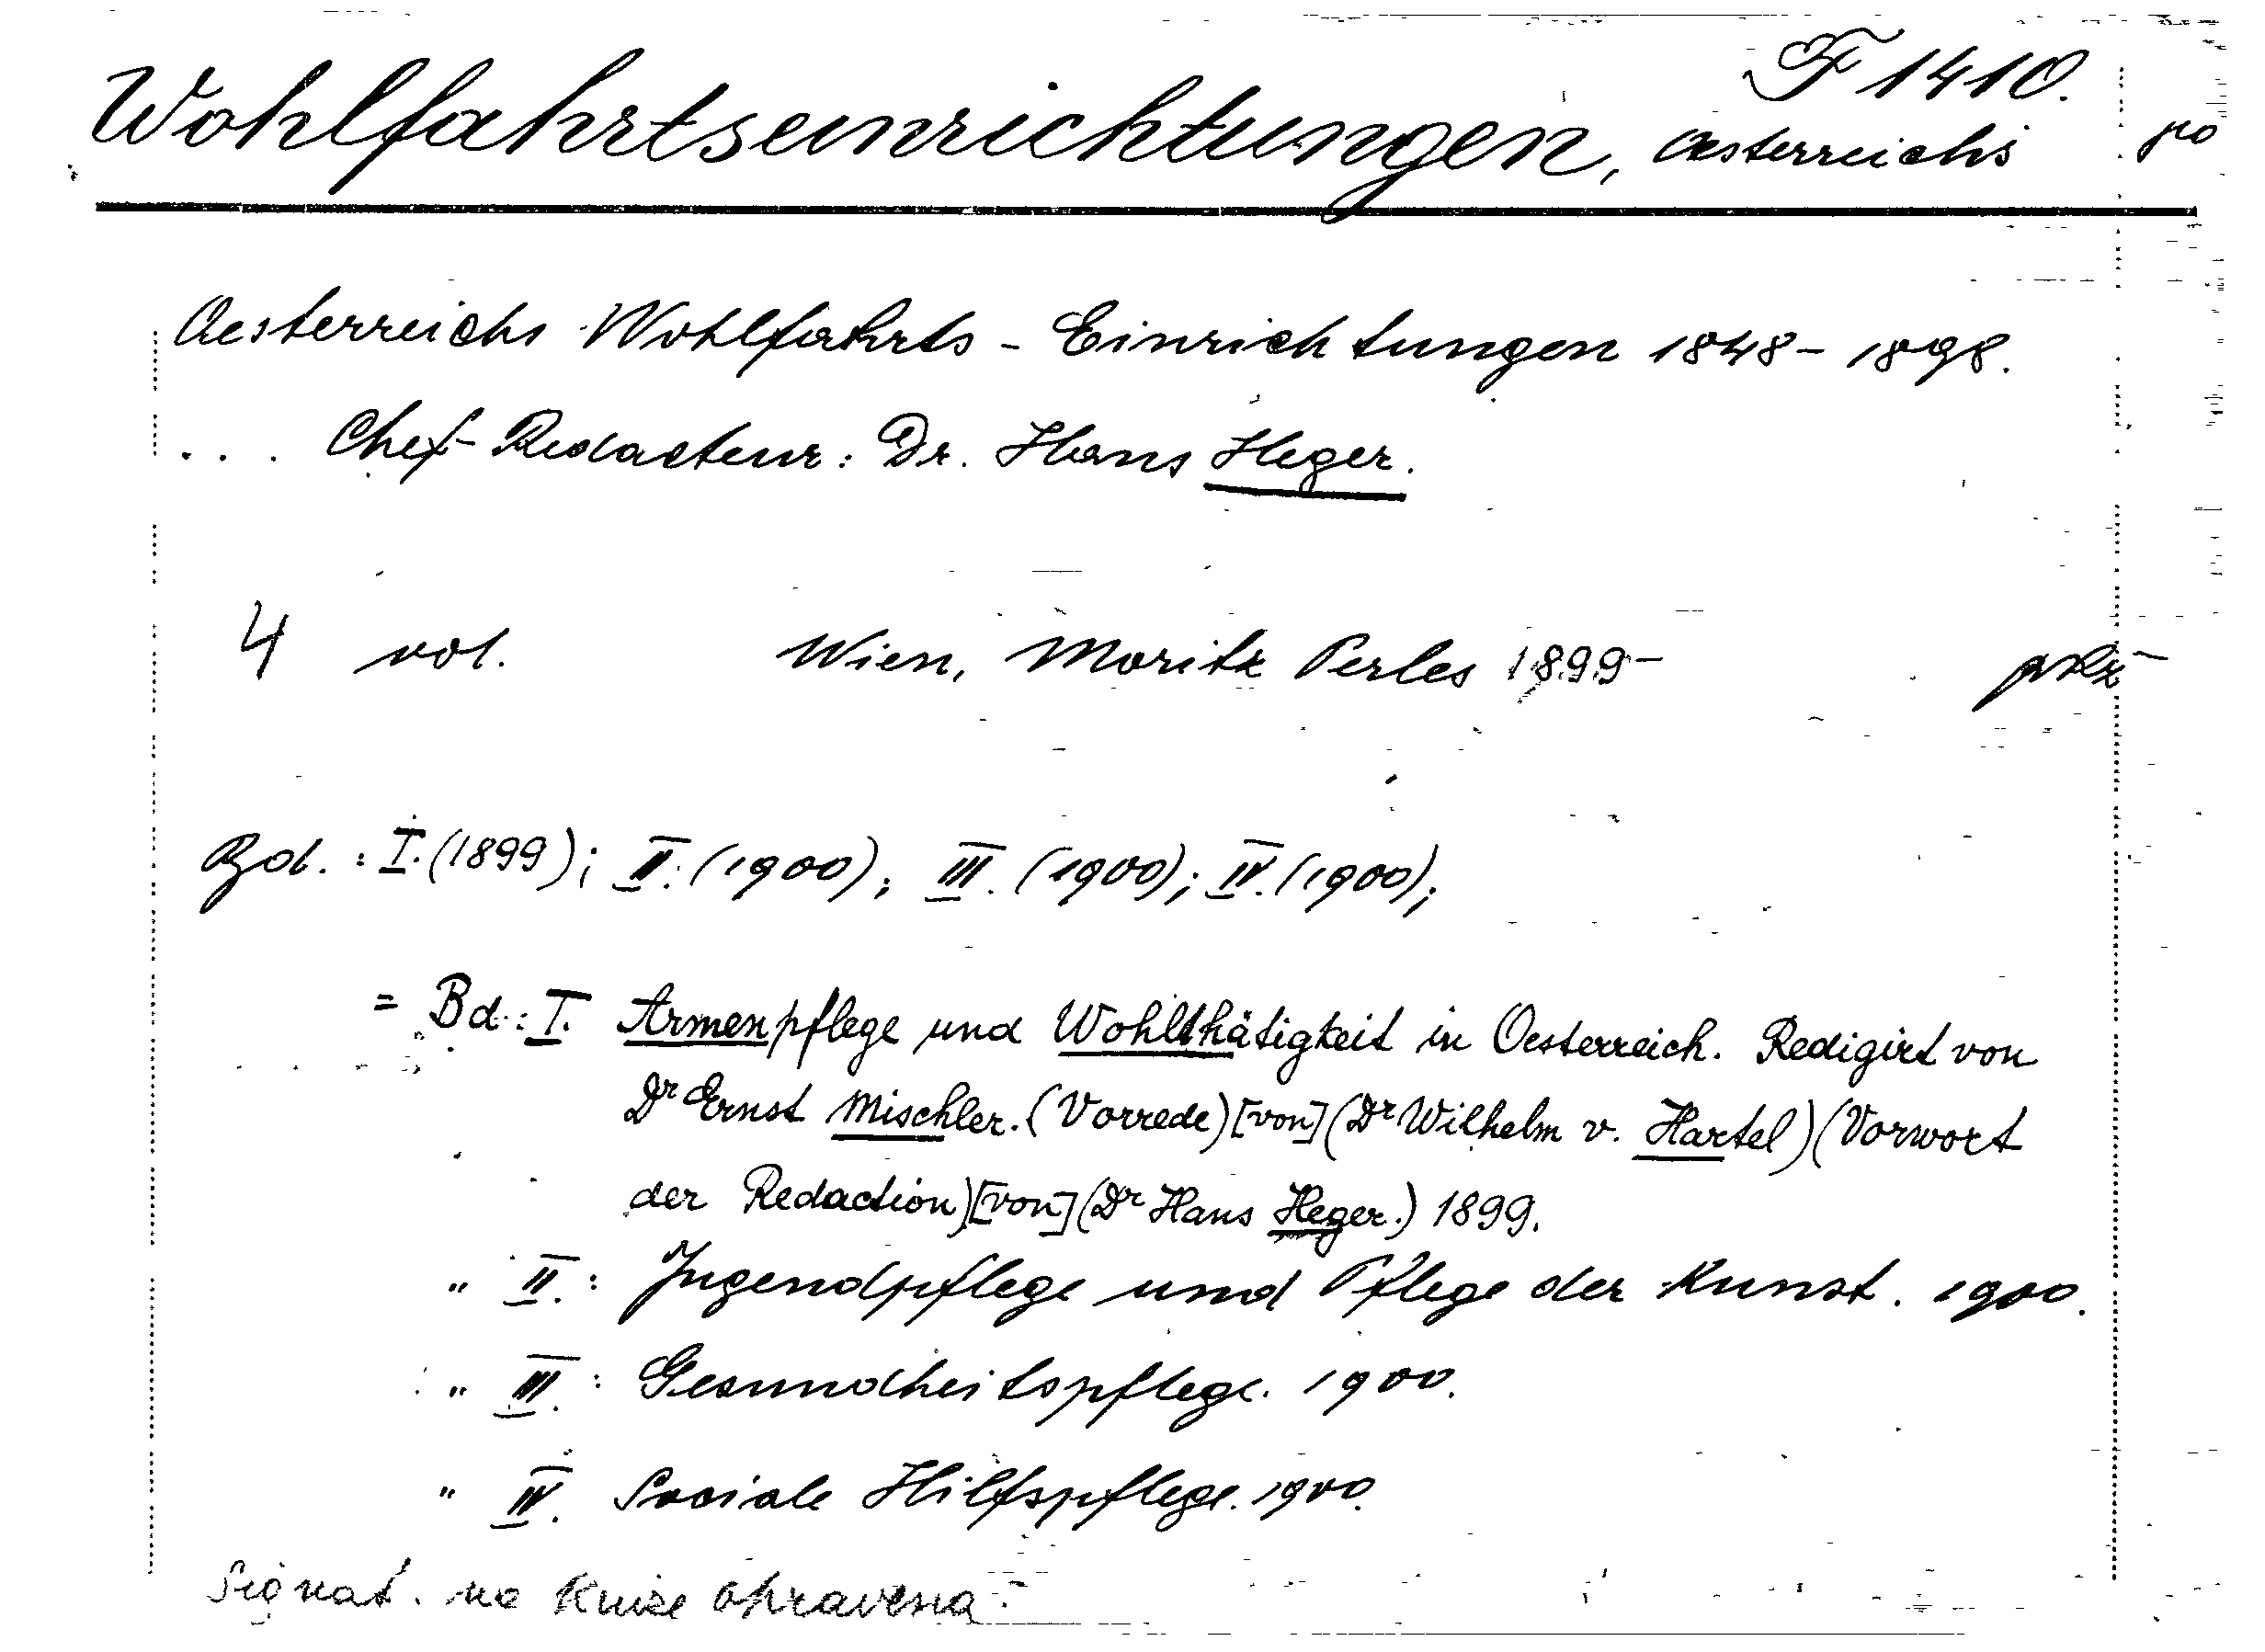 F 1410.
Wohlfahrtseinrichtungen, Oesterreichs
Oesterreichs Wohlfahrts-Einrichtungen 1848-1898.
... Chef-Redacteur: Dr. Hans Heger.
4 vol. Wien, Moritz Perles 1899-
Bd.: I. (1899); II. (1900); III. (1900); IV. (1900);
= Bd.: I. Armenpflege und Wohlthätigkeit in Oesterreich. Redigirt von
Dr Ernst Mischler. (Vorrede) [von] (Dr Wilhelm v. Hartel) (Vorwort
der Redaction) [von] (Dr Hans Heger.) 1899.
" II.: Jugendpflege und Pflege der Kunst. 1900.
" III.: Gesundheitspflege. 1900.
" IV. Sociale Hilfspflege. 1900.
Signat. na knize opravena